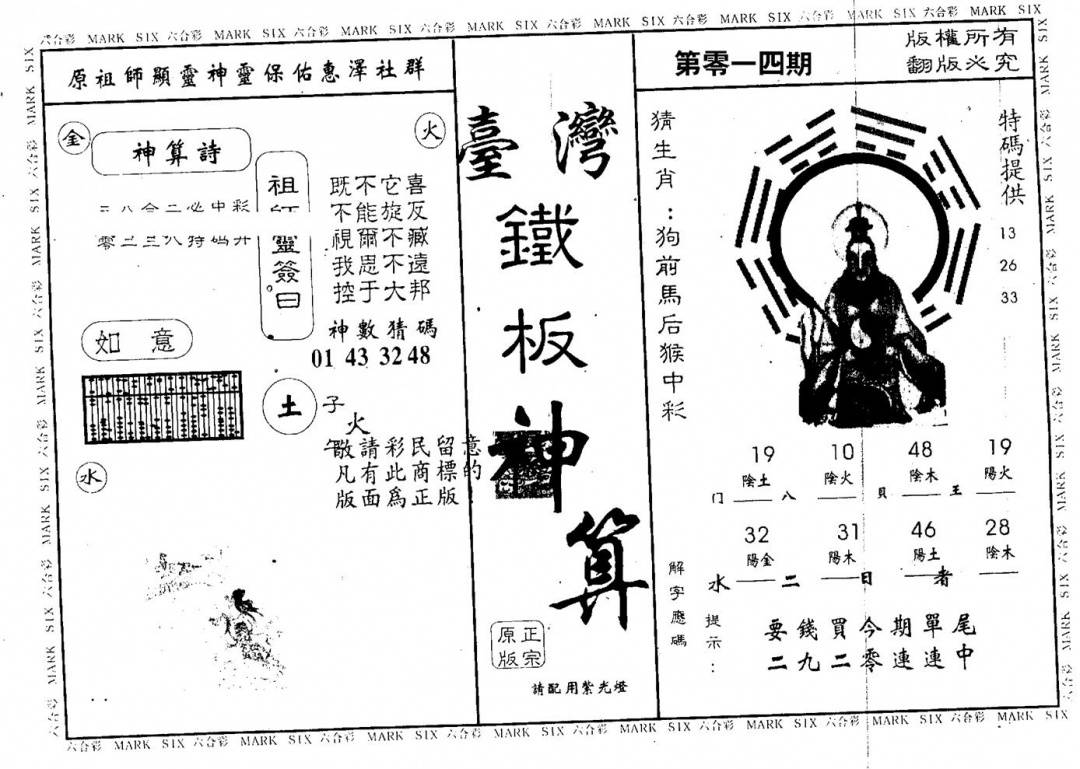 六合彩 MARK SIX 六合彩 MARK SIX 六合彩 MARK SIX 六合彩 MARK SIX 六合彩 MARK SIX 六合彩 MARK SIX 六合彩 MARK SIX 六合彩 MARK SIX
原祖師顯靈神靈保佑惠澤社群
金
火
神算詩
彩中必二合八
碼特八三二零
靈簽曰
喜它不既
反旋能不
臧不爾視
遠不思我
邦大于控
神數猜碼
01 43 32 48
如意
土
子
火
水
敬請彩民留意
凡有此商標的
版面為正版
臺灣
鐵
板
神
算
正宗
原版
請配用紫光燈
第零一四期
版權所有
翻版必究
猜生肖：狗前馬后猴中彩
特碼提供
13
26
33
19 10 48 19
陰土 陰火 陰木 陽火
門 八 貝 王
32 31 46 28
陽金 陽木 陽土 陰木
水 二 日 者
解字應碼
提示：
要錢買今期單尾
二九二零連連中
六合彩 MARK SIX 六合彩 MARK SIX 六合彩 MARK SIX 六合彩 MARK SIX 六合彩 MARK SIX 六合彩 MARK SIX 六合彩 MARK SIX 六合彩 MARK SIX